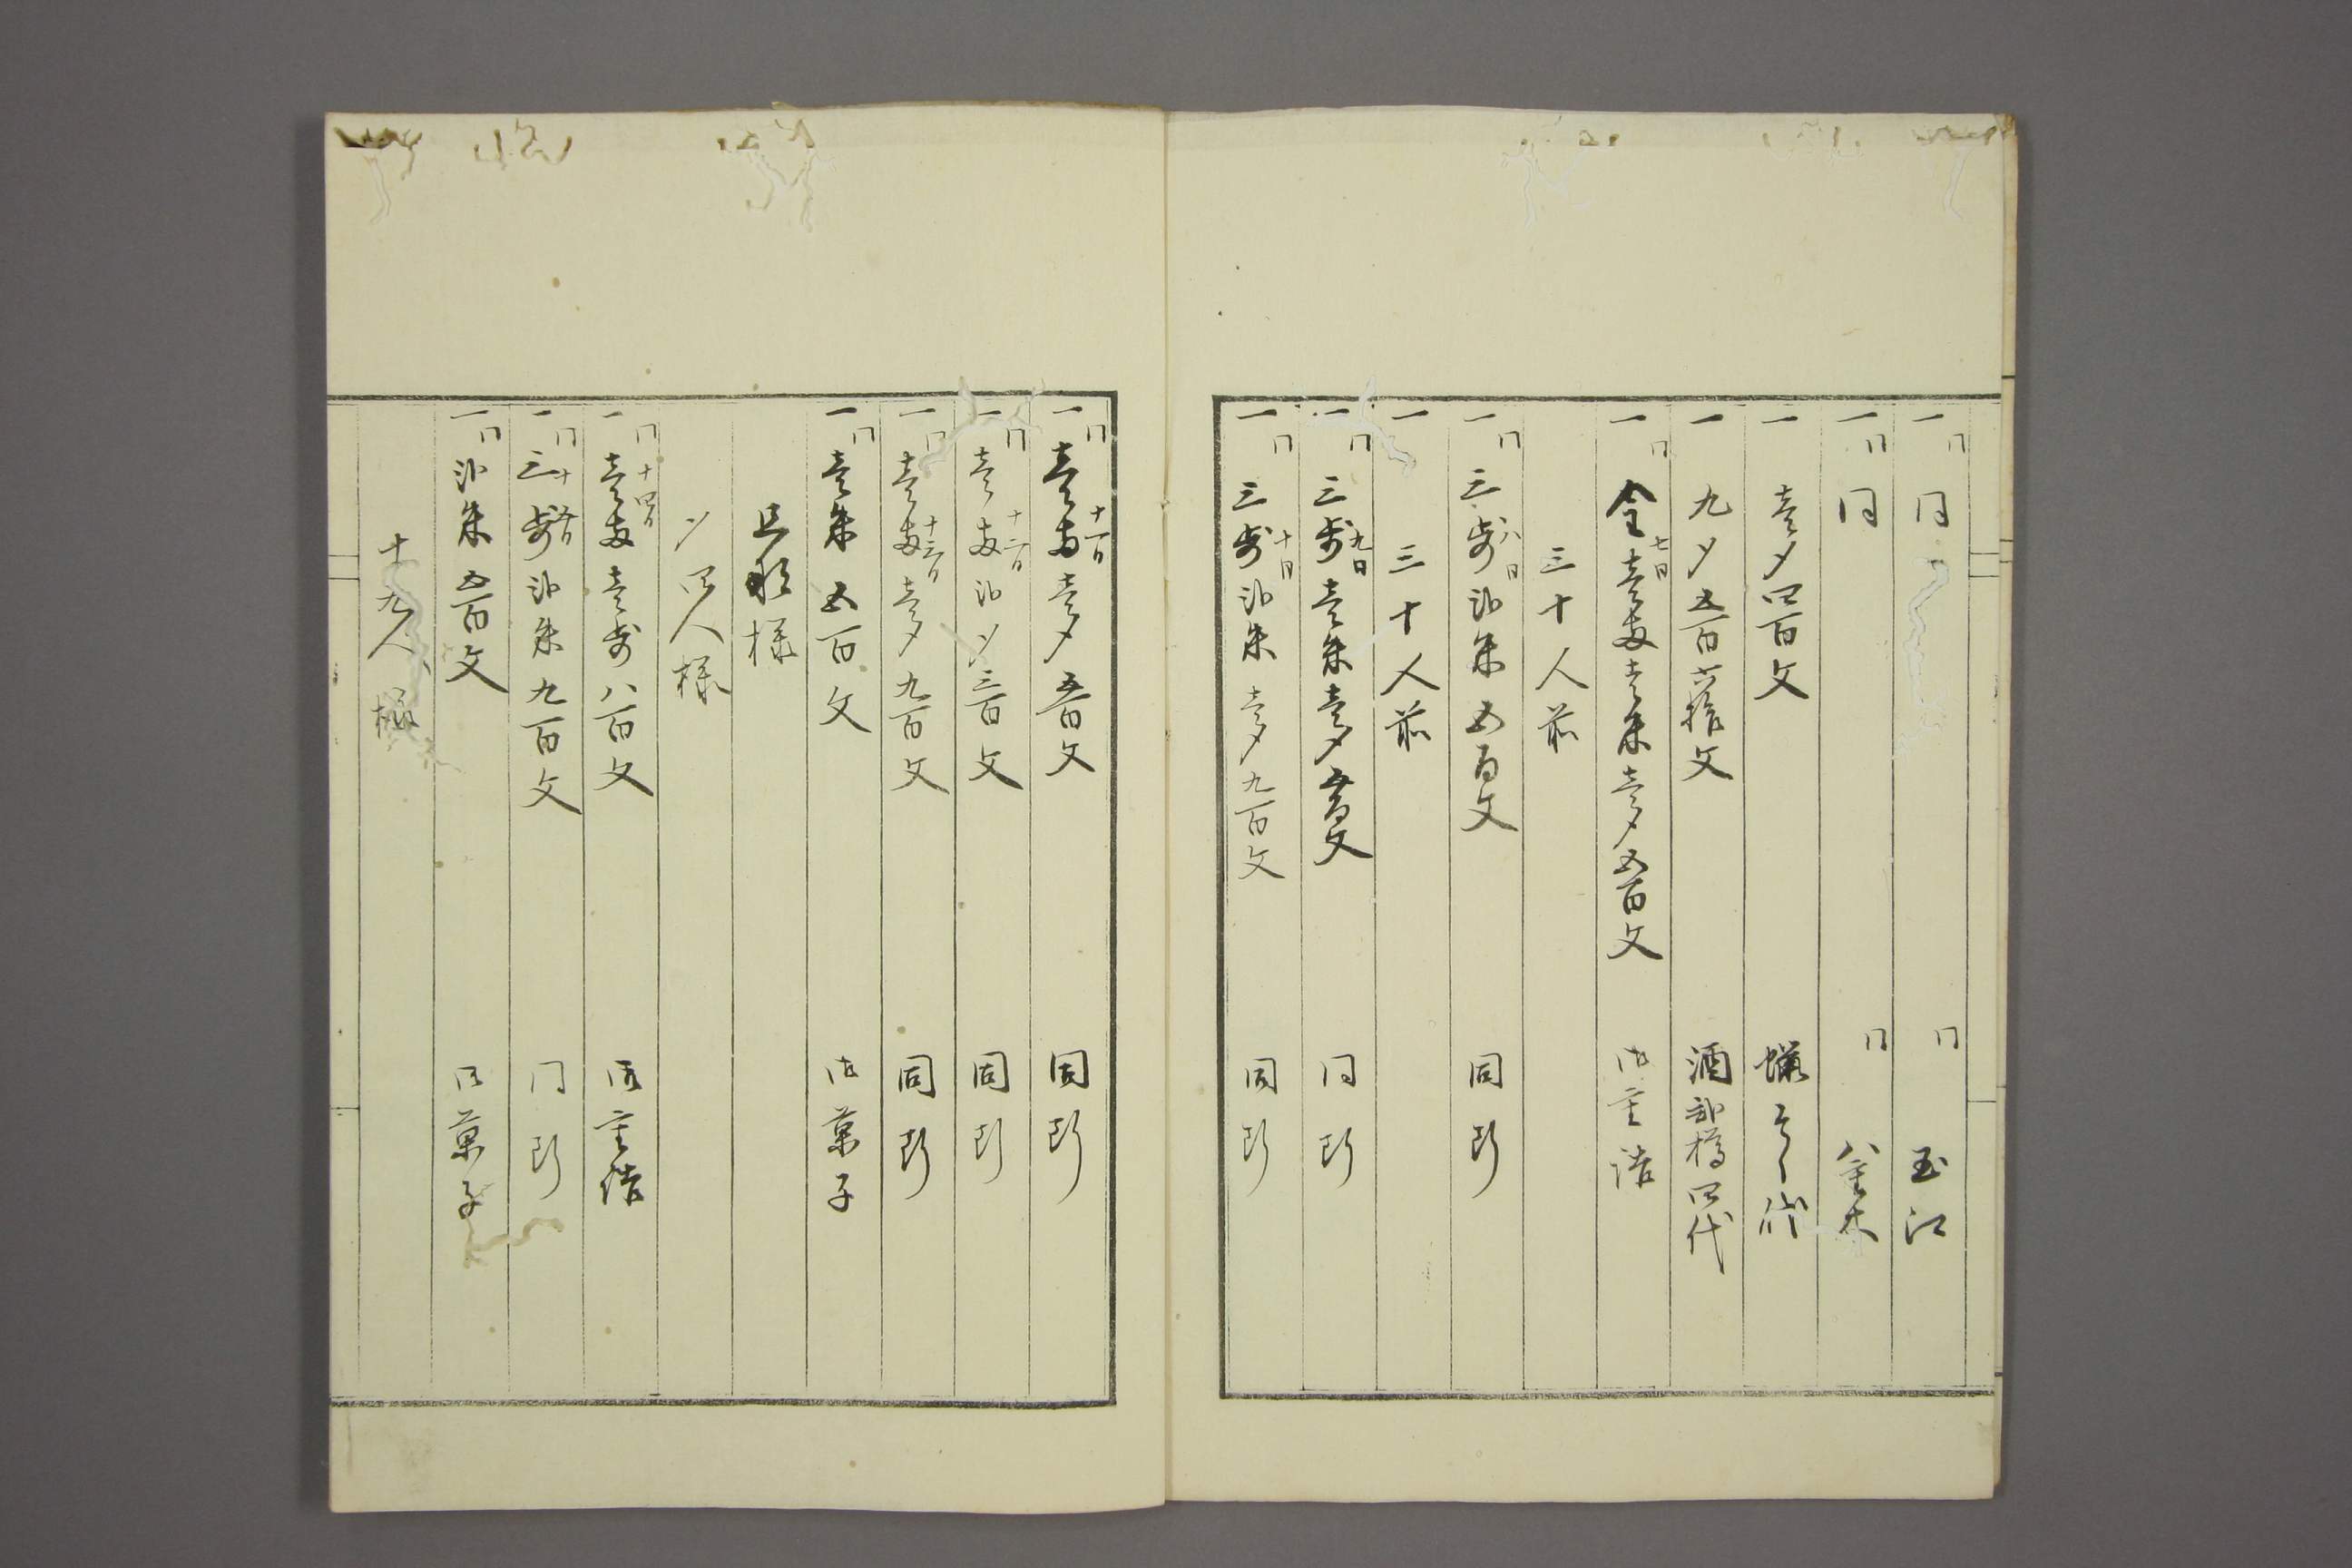 一 同 同 同 玉江
一 同 同 同 八重木
一 壱〆四百文 蝋そく代
一 九〆五百六拾文 酒弐樽四代
一 同 七日 金壱両壱朱壱〆五百文 御重詰
三十人前
一 同 八日 三歩弐朱五百文 同断
一 三十人前
一 同 九日 三歩壱朱壱〆五百文 同断
一 同 十日 三歩弐朱壱〆九百文 同断
一 同 十一日 壱両壱〆五百文 同断
一 同 十二日 壱両弐〆三百文 同断
一 同 十三日 壱両壱〆九百文 同断
一 同 壱朱五百文 御菓子
旦那様
〆四人様
一 同 十四日 壱両壱歩八百文 御重詰
一 同 十五日 三歩弐朱九百文 同断
一 同 弐朱五百文 御菓子
十九人様